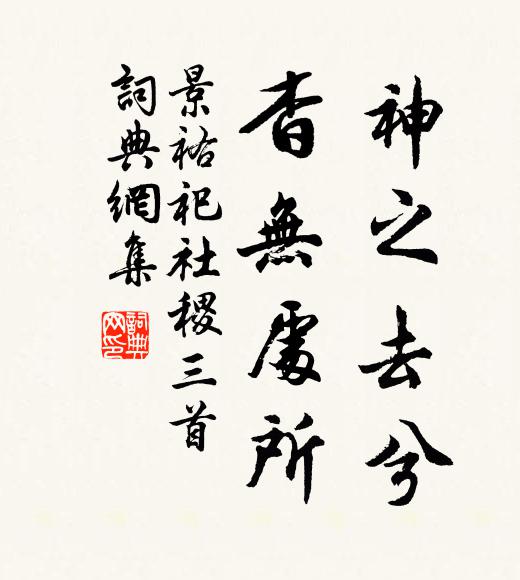 神之去兮
杳無處所
景祐祀社稷三首
詞典網集
詞典網印